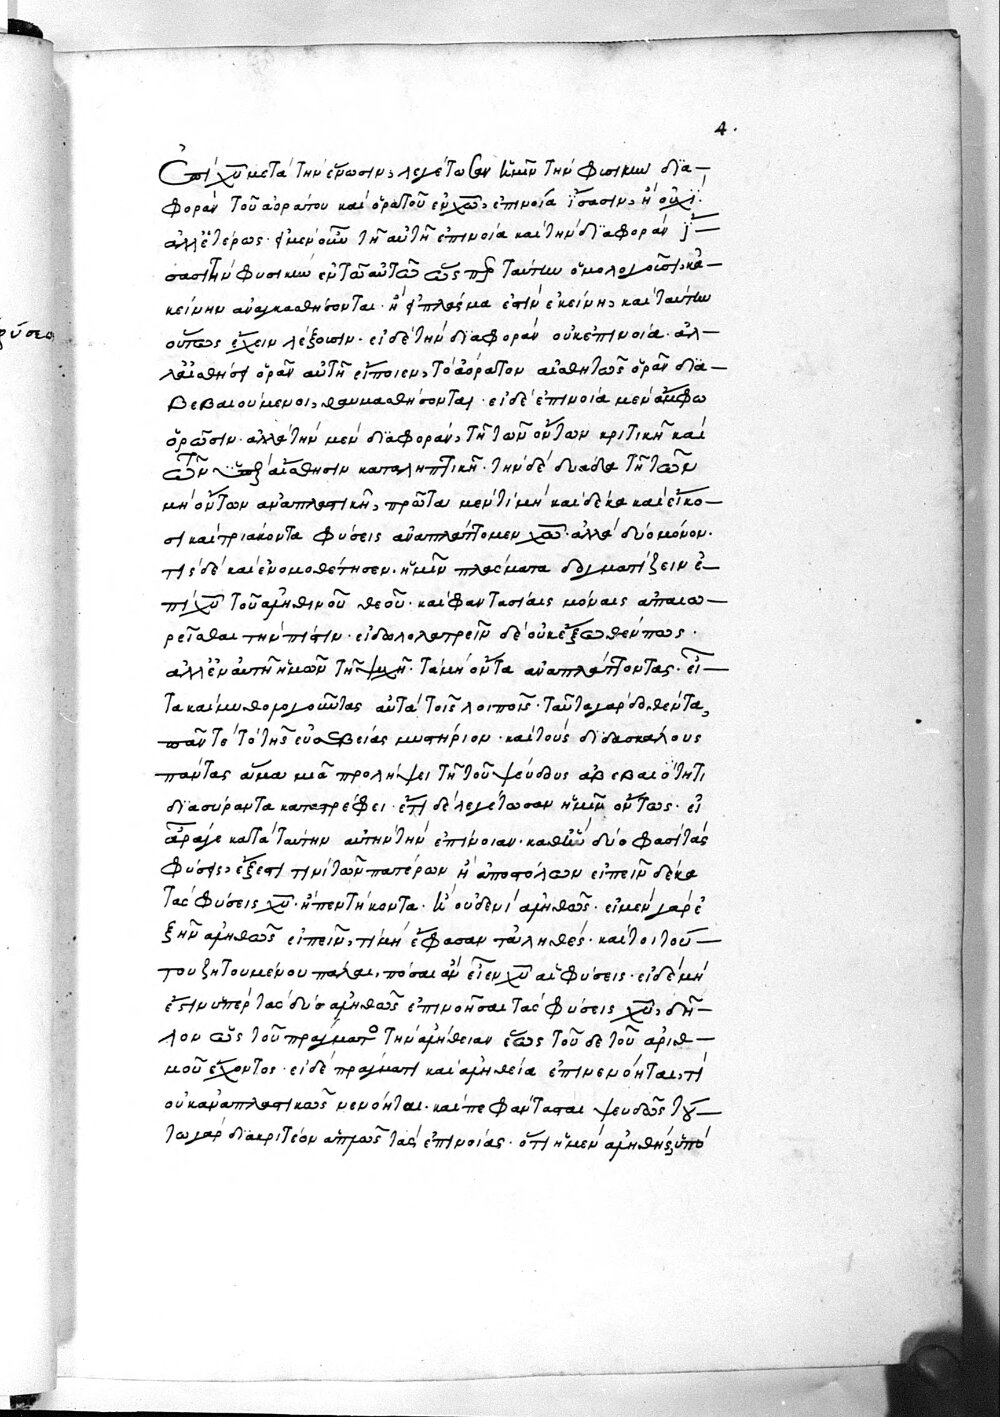 4.
ἐπὶ χῦ μετὰ τὴν ἕνωσιν, λεγέτωσαν ἡμῖν τὴν φυσικὴν δια-
φορὰν τοῦ ἀοράτου καὶ ὁρατοῦ ἐν χῶ, ἐπινοία ἴσασιν, ἢ οὐχί.
ἀλλ' ἑτέρως. εἰ μὲν οὖν τῆ αὐτῆ ἐπινοία καὶ τὴν διαφορὰν ἴ-
σασι τὴν φυσικὴν ἐν τῶ αὐτῶ ὡς περ ταύτην ὁμολογοῦσι, κἀ-
κείνην ἀναγκασθήσονται. ἢ εἰ πλάσμα ἐστὶν ἐκείνη, καὶ ταύτην
οὕτως ἔχειν λέξουσιν. εἰ δὲ τὴν διαφορὰν οὐκ ἐπινοία. ἀλ-
λ' αἰσθήσει ὁρᾶν αὐτὴν εἴποιεν, τὸ ἀόρατον αἰσθητῶς ὁρᾶν δια-
βεβαιούμενοι, θαυμασθήσονται. εἰ δὲ ἐπινοία μὲν ἄμφω
ὁρῶσιν. ἀλλὰ τὴν μὲν διαφορὰν, τῆ τῶν ὄντων κριτικῆ καὶ
τῶν αἴσθησιν καταληπτικῆ. τὴν δὲ δυάδα τῆ τῶν
μὴ ὄντων ἀναπλαστικῆ, πρῶτα μὲν τί μὴ καὶ δέκα καὶ εἴκο-
σι καὶ τριάκοντα φύσεις ἀναπλάττομεν χῶ. ἀλλὰ δύο μόνον.
τίς δὲ καὶ ἐνομοθέτησεν ἡμῖν πλάσματα δογματίζειν ἐ-
πὶ χῦ τοῦ ἀληθινοῦ θεοῦ. καὶ φαντασίαις μόναις ἀπαιω-
ρεῖσθαι τὴν πίστιν. εἰδωλολατρεῖν δὲ οὐκ ἔξωθέν πως.
ἀλλ' ἐν αὐτῆ ἡμῶν τῆ ψυχῆ. τὰ μὴ ὄντα ἀναπλάττοντας. εἶ-
τα καὶ μυθολογοῦντας αὐτὰ τοῖς λοιποῖς. ταῦτα γὰρ δοθέντα,
πᾶν τε τὸ τῆς εὐσεβείας μυστήριον. καὶ τοὺς διδασκάλους
πάντας ἅμα μιᾶ προλήψει τῆ τοῦ ψεύδους ἀβεβαιότητι
διασύραντα καταστρέφει. ἔτι δὲ λεγέτωσαν ἡμῖν οὕτως. εἰ
ἆράγε κατὰ ταύτην αὐτὴν τὴν ἐπίνοιαν. καθ' ἣν δύο φασὶ τὰς
φύσεις, ἔξεστί τινι τῶν πατέρων ἢ ἀποστόλων εἰπεῖν δέκα
τὰς φύσεις χῦ. ἢ πεντήκοντα. ἢ οὐδενὶ ἀληθῶς. εἰ μὲν γὰρ ἐ-
ξῆν ἀληθῶς εἰπεῖν, τί μὴ ἔφασαν τἀληθές. καίτοι τού-
του ζητουμένου πάλαι, πόσαι ἂν εἶεν χῦ αἱ φύσεις. εἰ δὲ μὴ
ἔστιν ὑπὲρ τὰς δύο ἀληθῶς ἐπινοῆσαι τὰς φύσεις χῦ, δῆ-
λον ὡς τοῦ πράγματος τὴν ἀλήθειαν ἕως τοῦδε τοῦ ἀριθ-
μοῦ ἔχοντος. εἰ δὲ πράγματι καὶ ἀληθεία ἐπινενόηται, τί
οὐκ ἀναπλαστικῶς νενόηται. καὶ πεφάντασται ψευδῶς τού-
τω γὰρ διακριτέον ἁπλῶς τὰς ἐπινοίας. ὅτι ἡ μὲν ἀληθὴς ὑπὸ